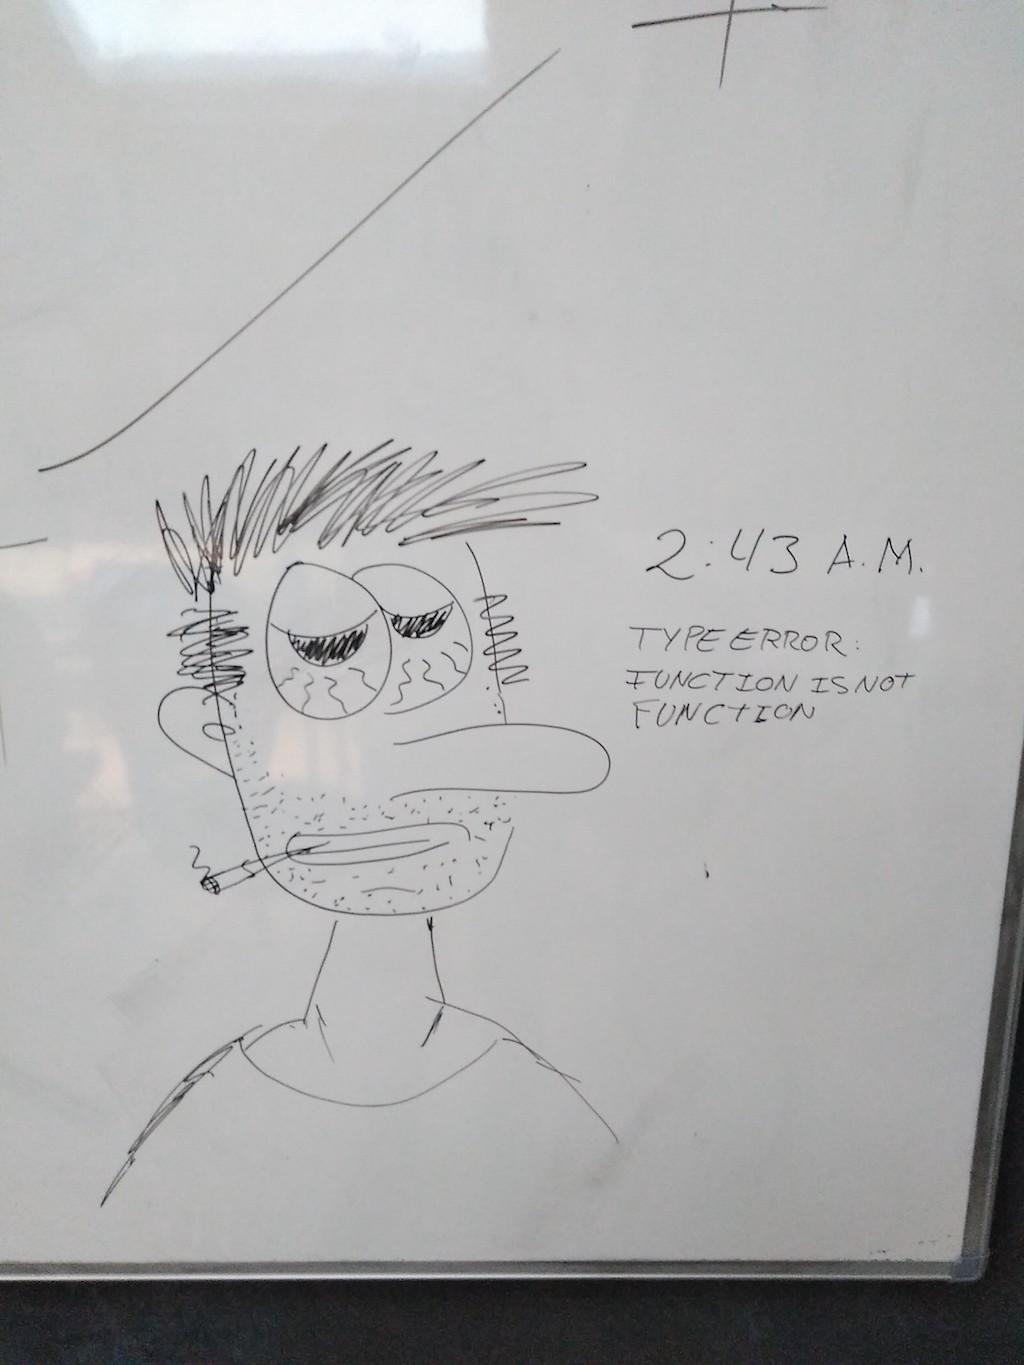 2:43 A.M.
TYPE ERROR:
FUNCTION IS NOT
FUNCTION